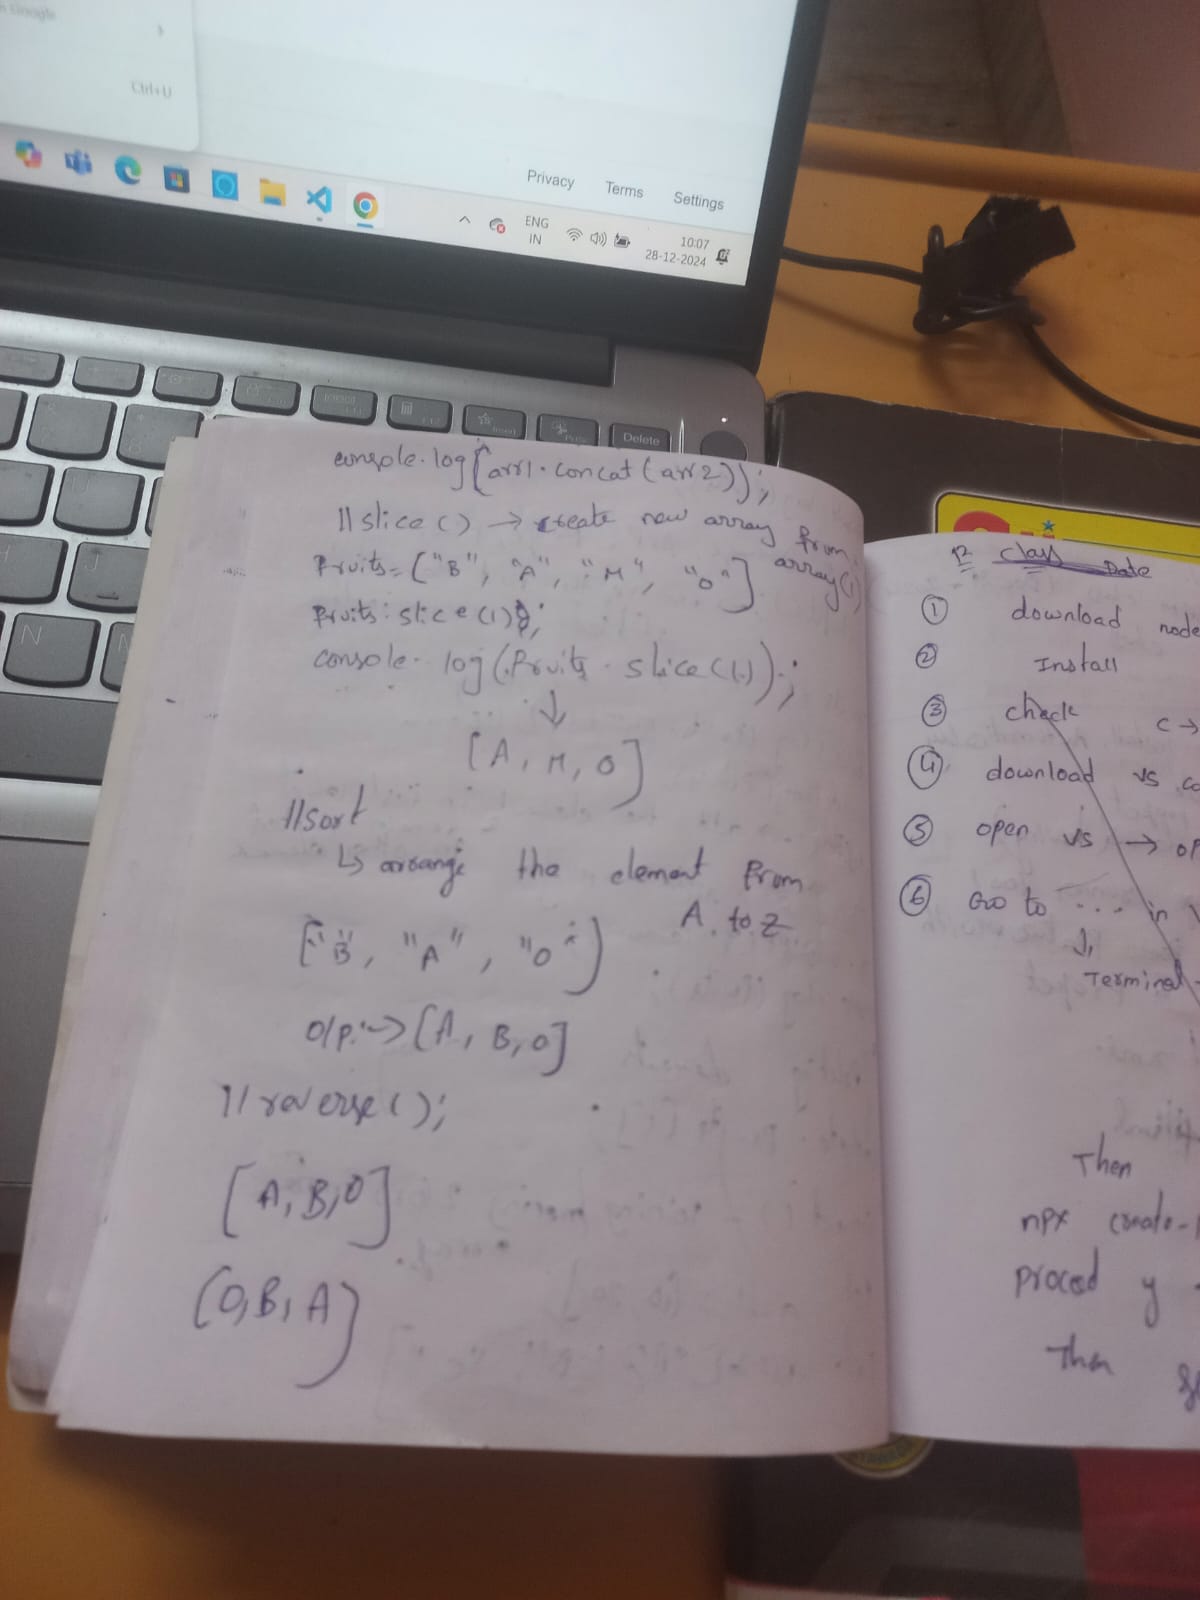 Ctrl+U
Privacy Terms Settings
ENG
IN
10:07
28-12-2024
Delete
N
J
console.log(arr1.concat(arr2));
//slice() → create new array from
array(1)
Fruits=["B", "A", "M", "O"]
Fruits.slice(1);
console.log(Fruits.slice(1));
↓
[A, M, O]
//sort
↳ arrange the element from
A. to Z
["B", "A", "O"]
o/p:→[A, B, O]
//reverse();
[A, B, O]
[O, B, A]
12 class Date
① download node
② Install
③ check c→
④ download vs co
⑤ open vs → op
⑥ Go to ... in
↓
Terminal
Then
npx create-
proced y
Then